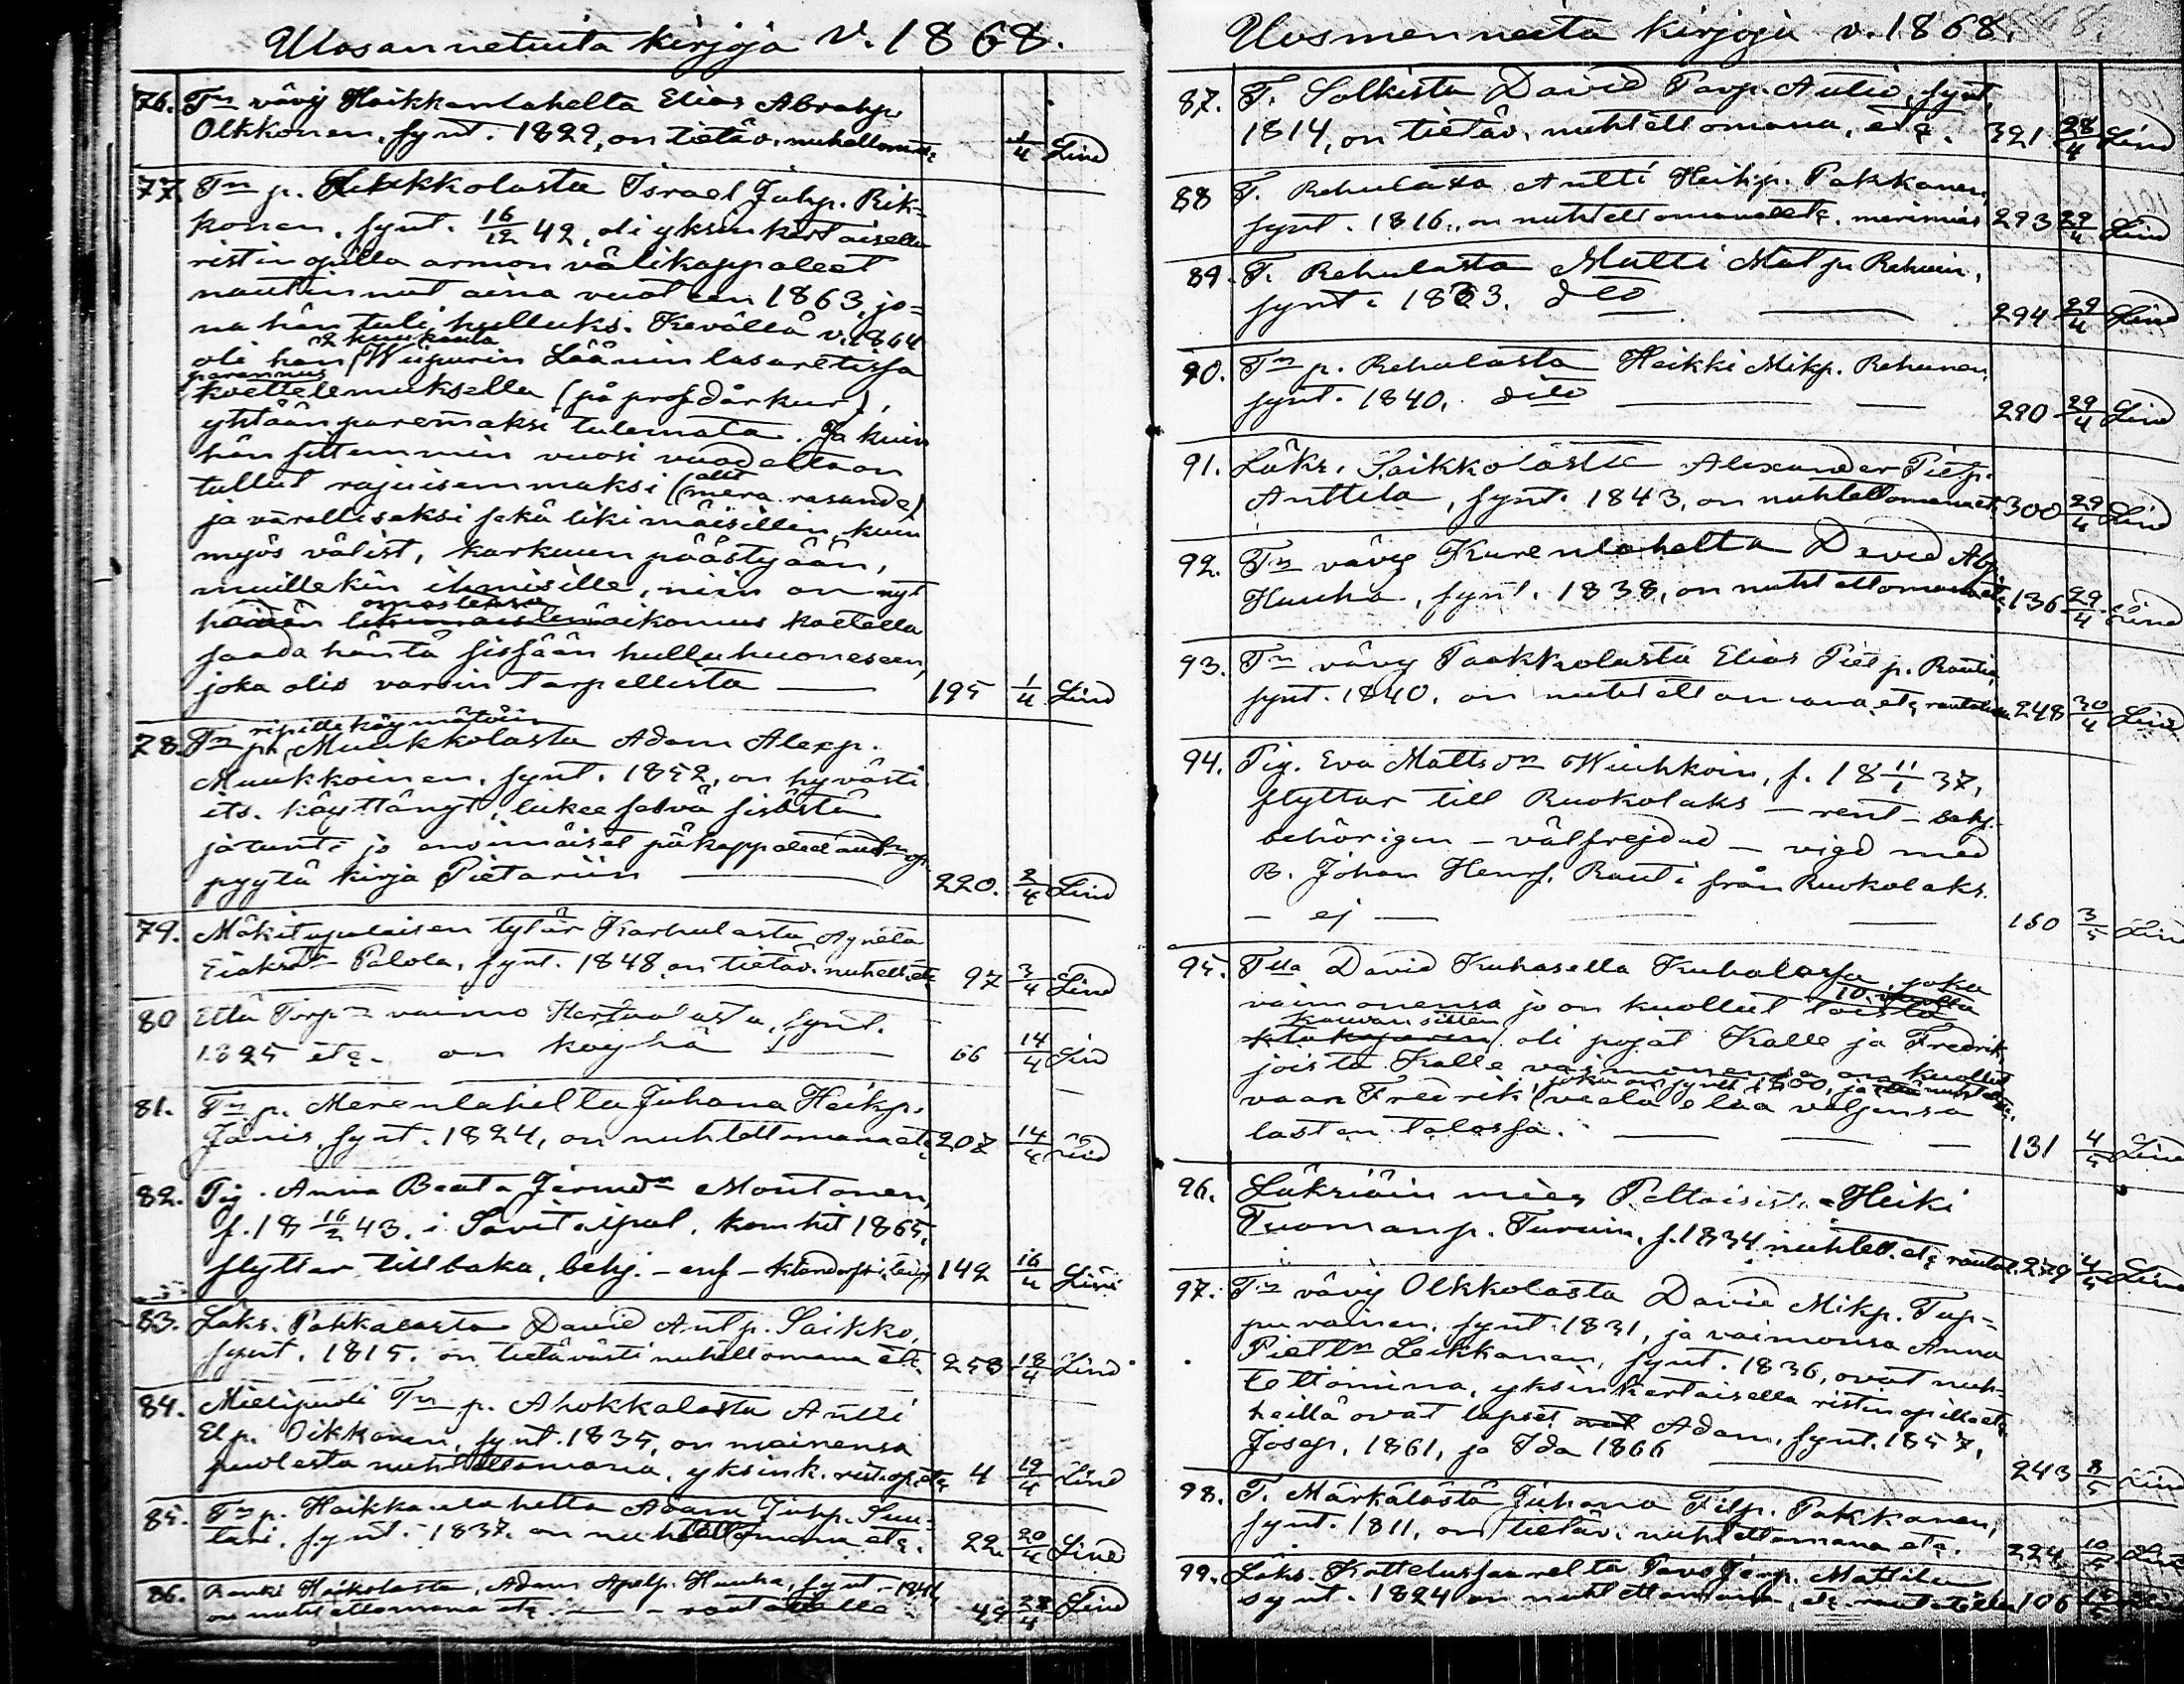 Ulosannetuita kirjoja v. 1868.
76. Tn vävy Haikkanlahelta Elias Abrahp.
Olkkonen, synt. 1829, on tietäv. nuhettomas: 1/4 Lind
77. Tn p. Israel Juhp. Rik=
konen, synt. 16/12 42, oli yksinkertaisella
ristinopilla armon välikappaleet
nautinnut aina vuoteen 1863, jo=
na hän tuli hulluks. Kevällä v. 1864
2 kuukautta
oli hän Wiipurin Läänin lasaretissa
parannus
koettelemuksella (på prof dårkur),
yhtään paremaksi tulemata. Ja kuin
hän sittemmin vuosi vuodeltaan
allt
tullut rajuisemmaksi (mera rasande)
ja varalliseksi sekä likimäisillen, kuin
myös välist, karkuun päästyään,
muillekin ihmisille, niin on nyt
omastensa
hänen aikomus koetella
saada häntä sissään hulluhuoneseen,
joka olis varsin tarpellista — 195 1/4 Lind
ripillekäymätöin
78. Tn p. Muukkolasta Adam Alexp.
Muukkoinen, synt. 1852, on hyvästi
its. käyttänyt, lukee sisästä
ja tunti jo ensimäiset pääkappaleet
pyytä kirja Pietariin — 220. 2/4 Lind
79. Mäkitupalaisen tytär Karhulasta Agneta
Palola, synt. 1848 on tietäv. nuhett. etc 97 3/4 Lind
80 Ella Torp= vaimo synt.
1825 etc. on köyhä — 66 14/4 Lind
81. Tn p. Merenlahelta Juhana Heikp.
Jänis, synt. 1824, on nuhtettomana etc 207 14/4 Lind
82. Pig. Anna Beata Montonen,
f. 18 16/2 43. i Savitaipal, kom hit 1865,
flyttar tillbaka, behj. — 142 16/4 Lind
83. Läks. Pakkalasta David Antp. Saikko,
synt. 1815. on tietävästi nuhettomana etc. 258 18/4 Lind
84. Mielipuoli Tn p. Ahokkalasta Antti
Elp. Oikkonen, synt. 1835, on maineensa
puolesta nuhtettomana, yksink. ristiop. etc 4 19/4 Lind
85. Tn p. Haikkanlahelta Adam Juhp. Suu=
tari, synt. 1837. on nuhtettomana etc. 22. 20/4 Lind
86. Renki Adam Huuha, synt. 1841
on nuhtettomana etc — rautatielle 49 28/4 Lind
Uosmenneita kirjoja v. 1868.
87. T. Solkista David Pavp. Autio, synt.
1814, on tietäv. nuhtettomana, etc. 321 28/4 Lind
88 T. Rehulasta Antti Heikp. Pakkanen,
synt. 1816, on nuhtettomana etc. merimies 293 29/4 Lind
89. T. Rehulasta Matti Matp. Rehuin,
synt. 1833. dto — 294 29/4 Lind
90. Tn p. Rehulasta Heikki Mikp. Rehunen,
synt. 1840. dito — 290 29/4 Lind
91. Läks. Saikkolasta Alexander Pietp.
Anttila, synt. 1843, on nuhtettomana etc 300 29/4 Lind
92. Tn vävy Kurenlahelta David Abp
Huuha, synt. 1838, on nuhtettomana etc 136 29/4 Lind
93. Tn vävy Taakkolasta Elias Pietp. Rautia,
synt. 1840. on nuhtettomana etc 248 30/4 Lind
94. Pig. Eva Mattsdr Wiihkoin, f. 18 11/1 37,
flyttar till Ruokolaks — rent — behj.
behörigen — välfrejdad — vigd med
B. Johan Henrs. Rauti från Ruokolaks.
— ej — 150 3/5 Lind
95. Tlla David Kuhasella Kuhalassa, joka
vaimonensa jo on kuollut
kauvan sitten
oli pojat Kalle ja Fredrik
joista Kalle vaimonensa on kuollut
joka on synt. 1800, ja
vaan Fredrik vielä elää veljensä
lasten talossa. — 131 4/5 Lind
96. Läksiäin mies Paltaisista Heiki
Tuomanp. Turuin, f. 1834 nuhtett. etc rautat. 279 4/5 Lind
97. Tn vävy Olkkolasta David Mikp. Tup=
purainen, synt. 1831, ja vaimonsa Anna
Piettr Leikkanen, synt. 1836, ovat nuh=
tettömina, yksinkertaisella ristinopilla etc
heillä ovat lapset Adam, synt. 1857,
Josep. 1861, ja Ida 1866 — 243 8/5 Lind
98. T. Märkälästä Juhana Filp. Pakkanen,
synt. 1811, on tietäv. nuhtettomana etc. 224 10/5 Lind
99. Läks. Kattelussaarelta Pavo Mattila
synt. 1824 on nuhtettomana, etc rautatielle 106